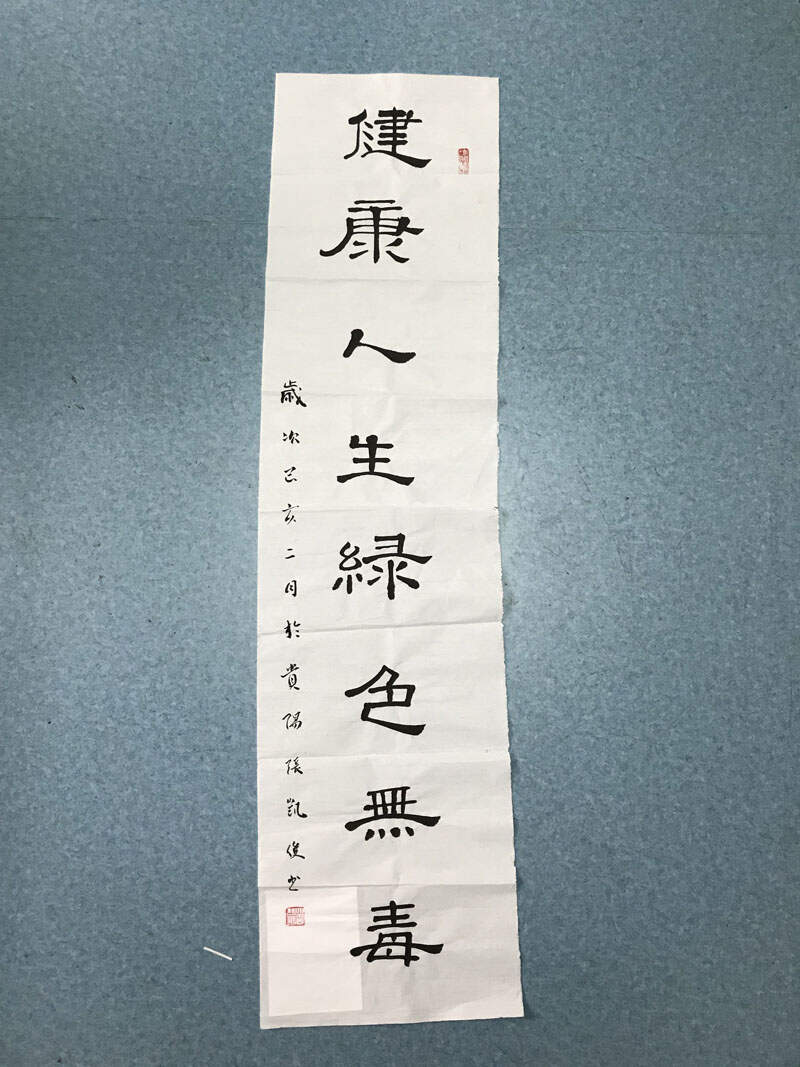 健康人生緑色無毒
歲次己亥二月於貴陽張凱俊书